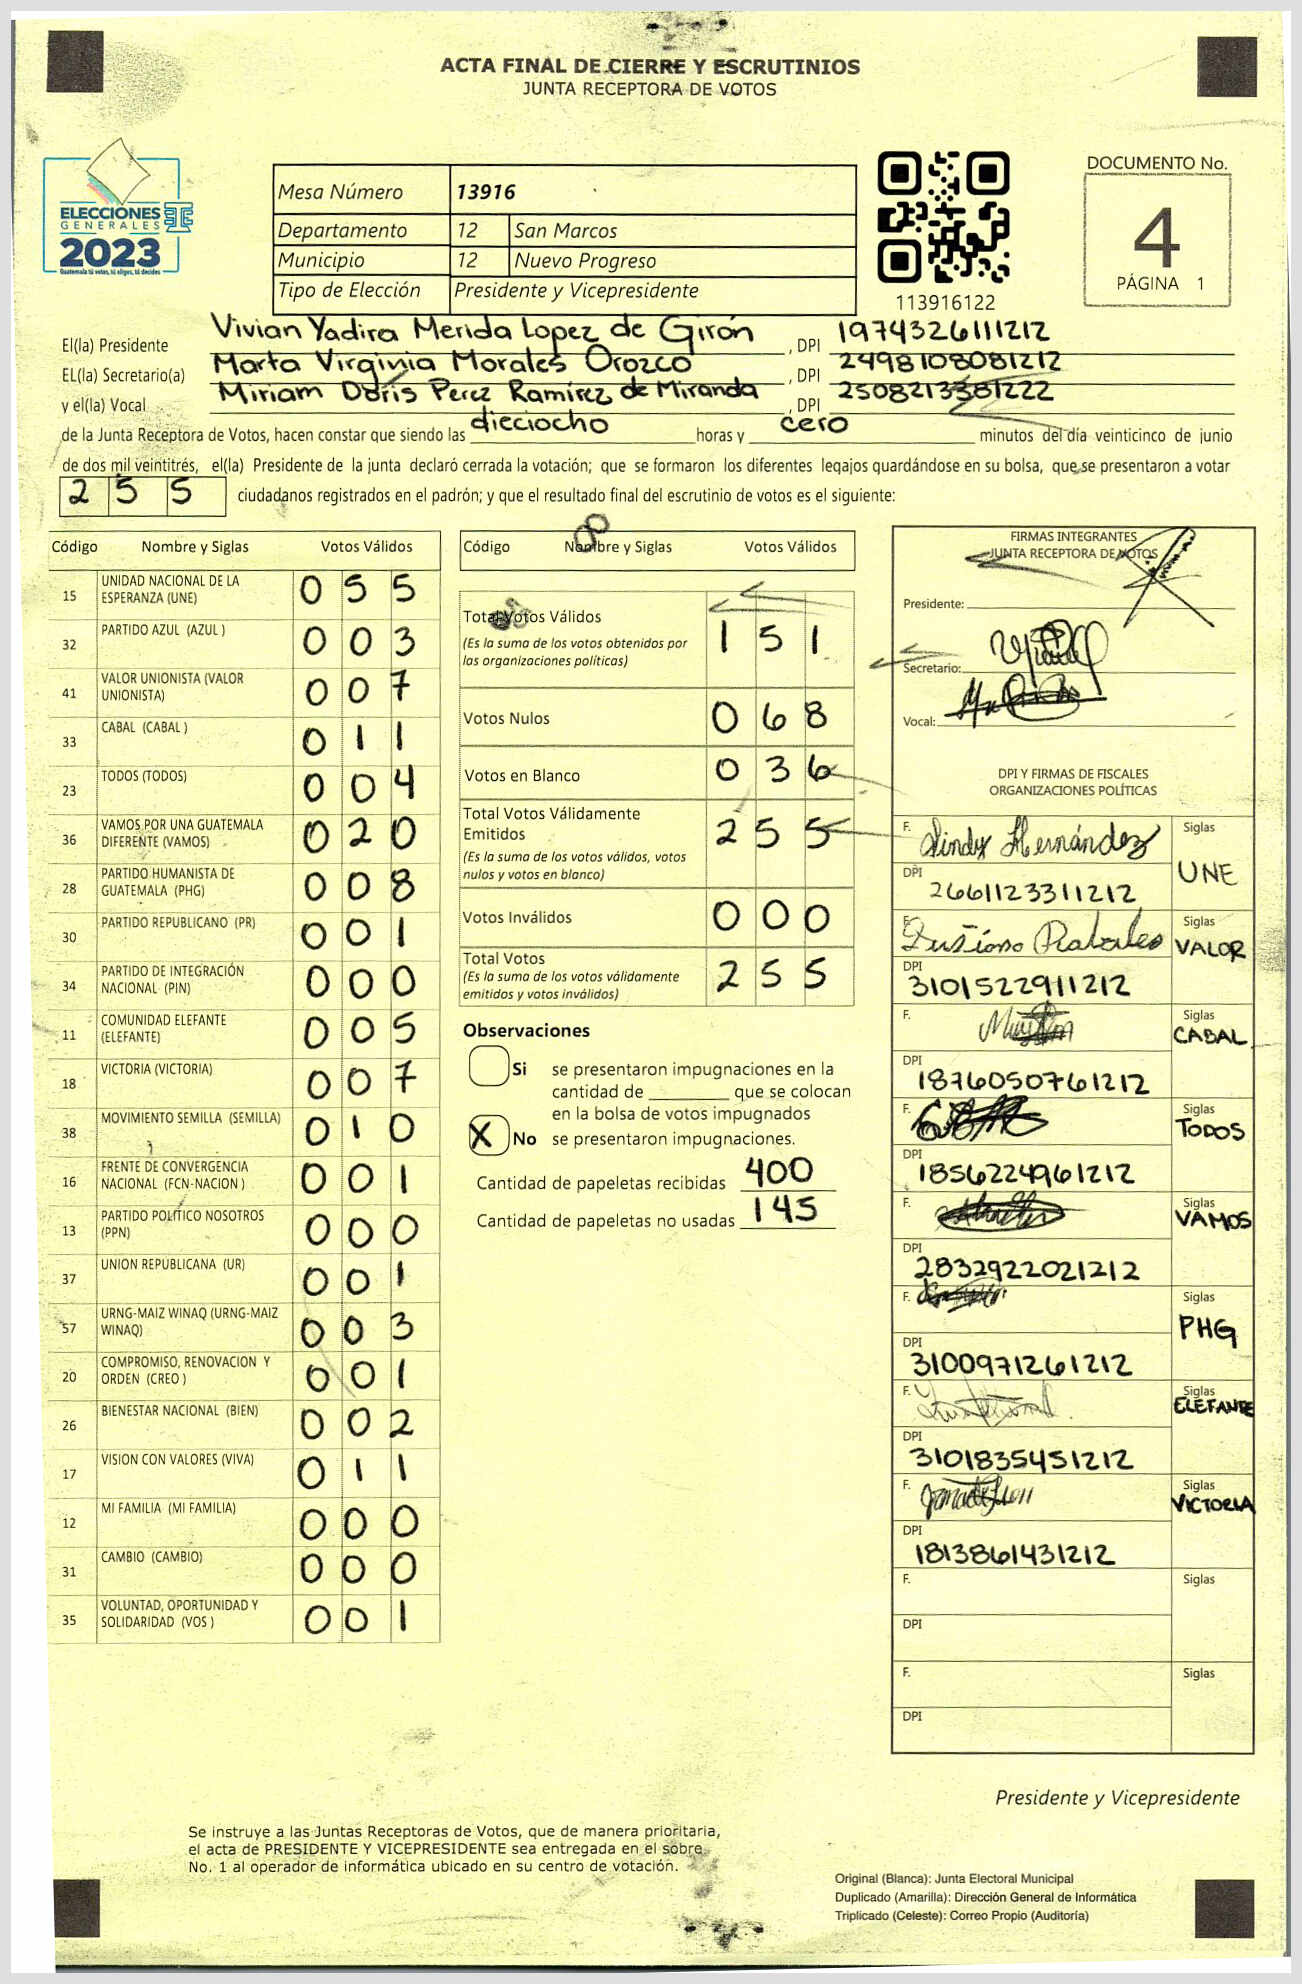 ACTA FINAL DE CIERRE Y ESCRUTINIOS
JUNTA RECEPTORA DE VOTOS
ELECCIONES
GENERALES
2023
Guatemala tú votas, tú eliges, tú decides
Mesa Número 13916
Departamento 12 San Marcos
Municipio 12 Nuevo Progreso
Tipo de Elección Presidente y Vicepresidente
113916122
DOCUMENTO No.
4
PÁGINA 1
El(la) Presidente Vivian Yadira Merida Lopez de Girón , DPI 1974326111212
EL(la) Secretario(a) Marta Virginia Morales Orozco , DPI 2498108081212
y el(la) Vocal Miriam Doris Perez Ramírez de Miranda , DPI 2508213381222
de la Junta Receptora de Votos, hacen constar que siendo las dieciocho horas y cero minutos del día veinticinco de junio
de dos mil veintitrés, el(la) Presidente de la junta declaró cerrada la votación; que se formaron los diferentes legajos guardándose en su bolsa, que se presentaron a votar
255 ciudadanos registrados en el padrón; y que el resultado final del escrutinio de votos es el siguiente:
Código Nombre y Siglas Votos Válidos
15 UNIDAD NACIONAL DE LA ESPERANZA (UNE) 0 5 5
32 PARTIDO AZUL (AZUL ) 0 0 3
41 VALOR UNIONISTA (VALOR UNIONISTA) 0 0 7
33 CABAL (CABAL ) 0 1 1
23 TODOS (TODOS) 0 0 4
36 VAMOS POR UNA GUATEMALA DIFERENTE (VAMOS) 0 2 0
28 PARTIDO HUMANISTA DE GUATEMALA (PHG) 0 0 8
30 PARTIDO REPUBLICANO (PR) 0 0 1
34 PARTIDO DE INTEGRACIÓN NACIONAL (PIN) 0 0 0
11 COMUNIDAD ELEFANTE (ELEFANTE) 0 0 5
18 VICTORIA (VICTORIA) 0 0 7
38 MOVIMIENTO SEMILLA (SEMILLA) 0 1 0
16 FRENTE DE CONVERGENCIA NACIONAL (FCN-NACION ) 0 0 1
13 PARTIDO POLITICO NOSOTROS (PPN) 0 0 0
37 UNION REPUBLICANA (UR) 0 0 1
57 URNG-MAIZ WINAQ (URNG-MAIZ WINAQ) 0 0 3
20 COMPROMISO, RENOVACION Y ORDEN (CREO ) 0 0 1
26 BIENESTAR NACIONAL (BIEN) 0 0 2
17 VISION CON VALORES (VIVA) 0 1 1
12 MI FAMILIA (MI FAMILIA) 0 0 0
31 CAMBIO (CAMBIO) 0 0 0
35 VOLUNTAD, OPORTUNIDAD Y SOLIDARIDAD (VOS ) 0 0 1
Código Nombre y Siglas Votos Válidos
Total Votos Válidos 1 5 1
(Es la suma de los votos obtenidos por
las organizaciones políticas)
Votos Nulos 0 6 8
Votos en Blanco 0 3 6
Total Votos Válidamente
Emitidos 2 5 5
(Es la suma de los votos válidos, votos
nulos y votos en blanco)
Votos Inválidos 0 0 0
Total Votos 2 5 5
(Es la suma de los votos válidamente
emitidos y votos inválidos)
Observaciones
Si se presentaron impugnaciones en la
cantidad de ________ que se colocan
en la bolsa de votos impugnados
X No se presentaron impugnaciones.
Cantidad de papeletas recibidas 400
Cantidad de papeletas no usadas 145
FIRMAS INTEGRANTES
JUNTA RECEPTORA DE VOTOS
Presidente:
Secretario:
Vocal:
DPI Y FIRMAS DE FISCALES
ORGANIZACIONES POLÍTICAS
F. Lindy Hernández Siglas
DPI 2661123311212 UNE
F. Siglas
DPI 3101522911212 VALOR
F. Siglas
DPI 1876050761212 CABAL
F. Siglas
DPI 1856224961212 TODOS
F. Siglas
DPI 2832922021212 VAMOS
F. Siglas
DPI 3100971261212 PHG
F. Siglas
DPI 3101835451212 ELEFANTE
F. Siglas
DPI 1813861431212 VICTORIA
F. Siglas
DPI
F. Siglas
DPI
Presidente y Vicepresidente
Se instruye a las Juntas Receptoras de Votos, que de manera prioritaria,
el acta de PRESIDENTE Y VICEPRESIDENTE sea entregada en el sobre
No. 1 al operador de informática ubicado en su centro de votación.
Original (Blanca): Junta Electoral Municipal
Duplicado (Amarilla): Dirección General de Informática
Triplicado (Celeste): Correo Propio (Auditoría)